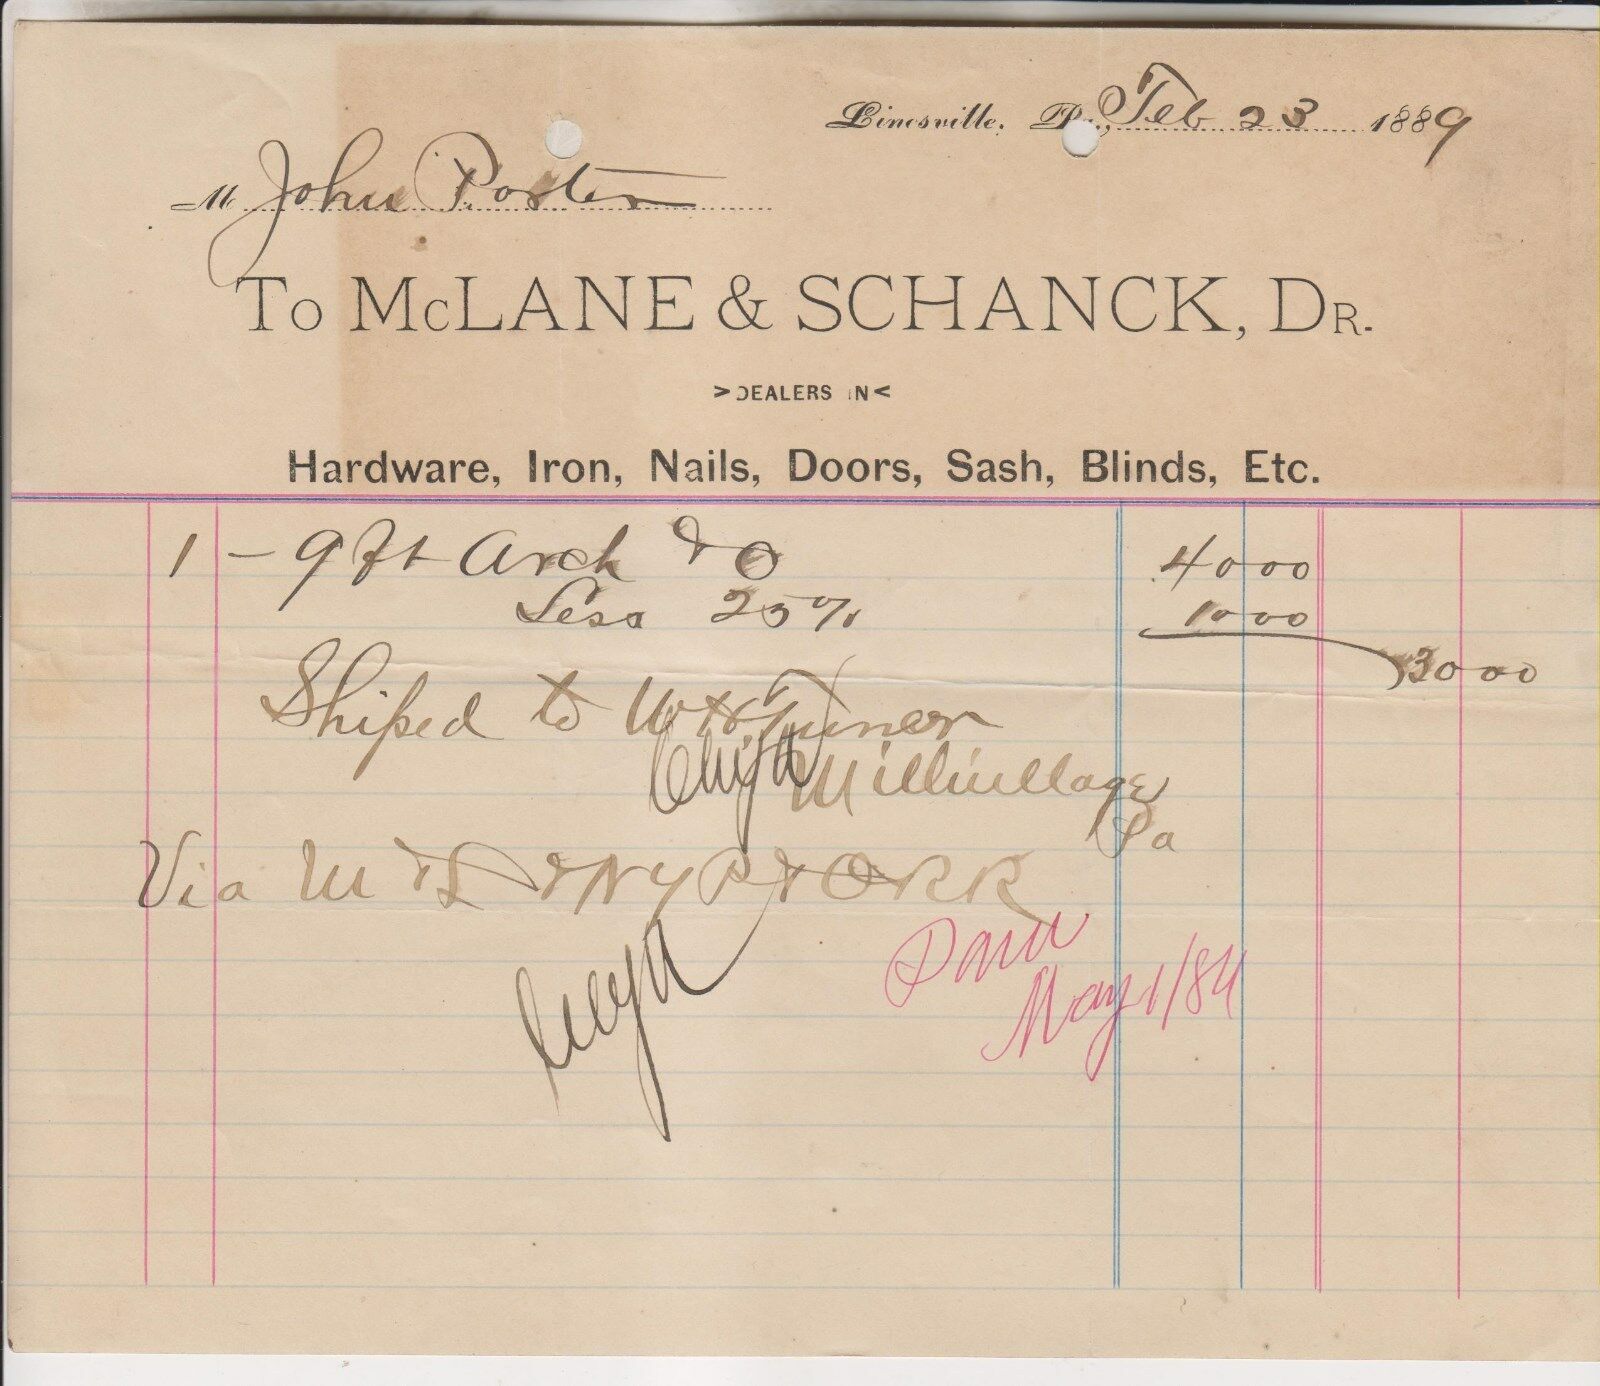 Linesville, Pa., Feb 23 1889
M John Porter
To McLANE & SCHANCK, Dr.
>DEALERS IN<
Hardware, Iron, Nails, Doors, Sash, Blinds, Etc.
1 - 9 ft Arch & O 40 00
Less 25% 10 00
30 00
Shiped to W H Turner
Millvillage
Pa
Via M & L & NYP & O RR
May 1/89